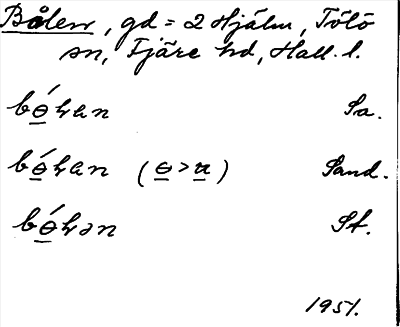 Bålen, gd = 2 Hjälm, Tölö
sn, Fjäre hd, Hall. l.
bɵ̲́ɫan Sa.
bɵ̲́ɫan (ɵ̲ > u̲) Sand.
bɵ̲́ɫən St.
1951.